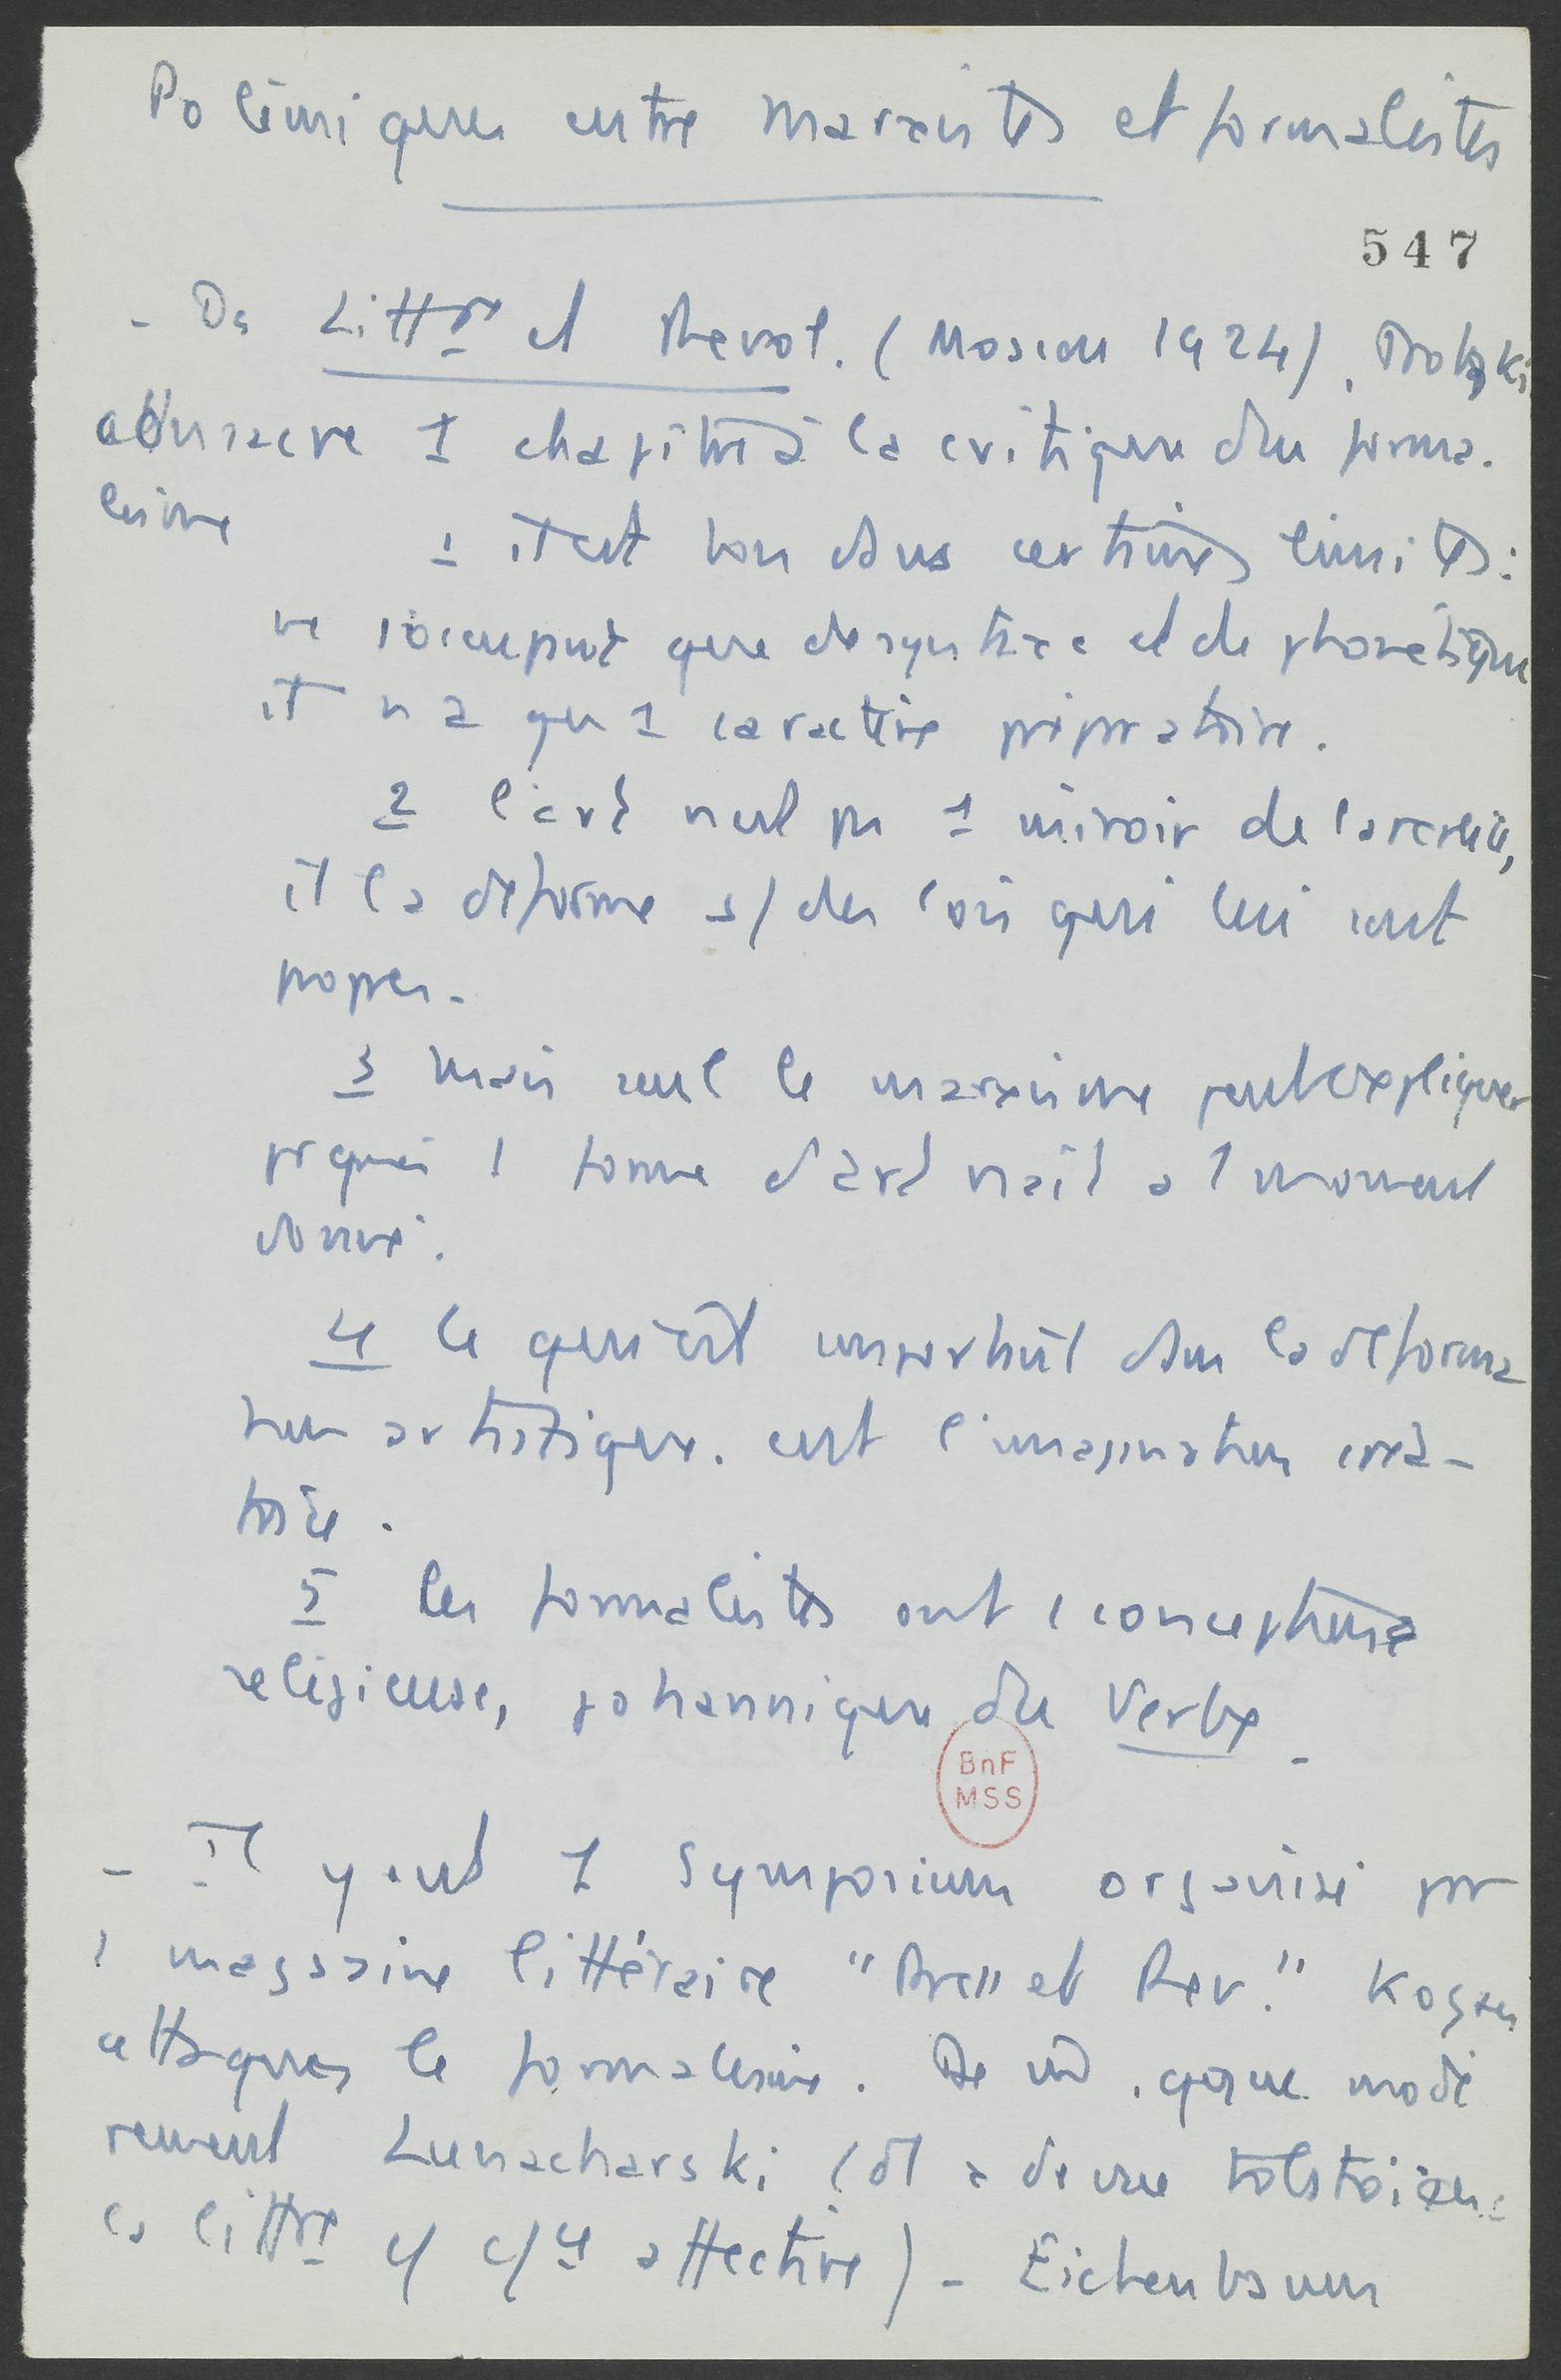 Polémiques entre marxistes et formalistes
547
- Ds Littre et Revol. (Moscou 1924), Trotzki
consacre 1 chapitre à la critique du forma-
lisme 1 il est bon dans certaines limites :
ne s'occupant que de syntaxe et de phonétique
il n'a qu'1 caractère préparatoire.
2 l'art n'est pas 1 miroir de la réalité,
il la déforme s/ des lois qui lui sont
propres.
3 mais seul le marxisme peut expliquer
pr quoi 1 forme d'art naît à 1 moment
donné.
4 ce qui est important dans la déforma
tion artistique. c'est l'imagination créa-
trice.
5 les formalistes ont 1 conception
religieuse, johannique du Verbe.
BnF
MSS
- Il y eut 1 Symposium organisé par
1 magazine littéraire "Presse et Rev." Kogan
attaque le formalisme. De m̂ que modé
rément Lunacharski (dt a de vue tolstoïenne
la littre c/ c/ affective) - Eichenbaum